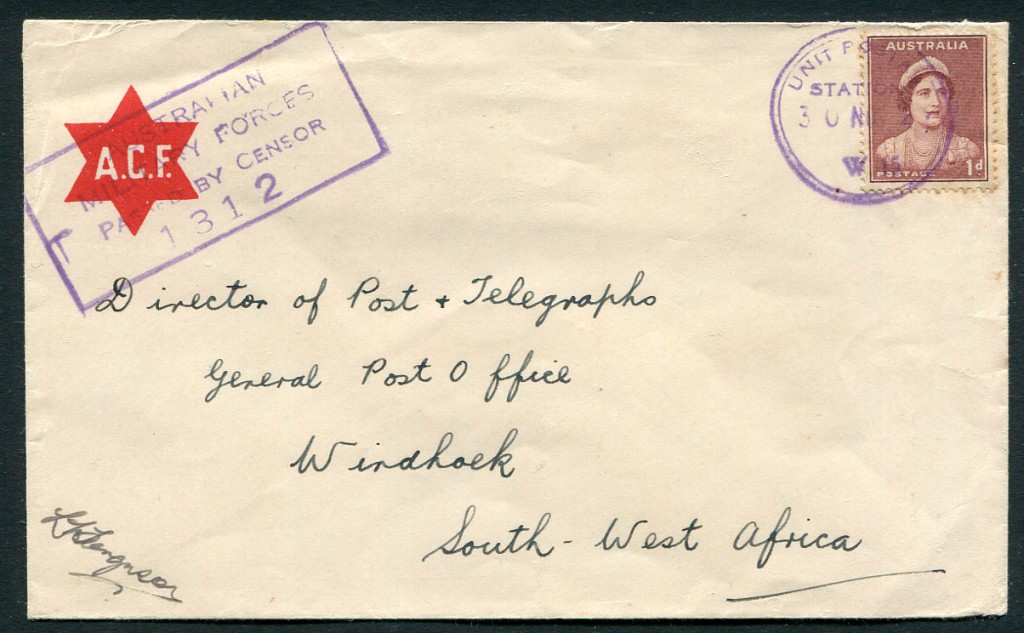 A.C.F.
AUSTRALIAN
MILITARY FORCES
PASSED BY CENSOR
1312
UNIT POSTAL
STATION
AUSTRALIA
POSTAGE 1d
Director of Post + Telegraphs
General Post Office
Windhoek
South-West Africa
Ferguson